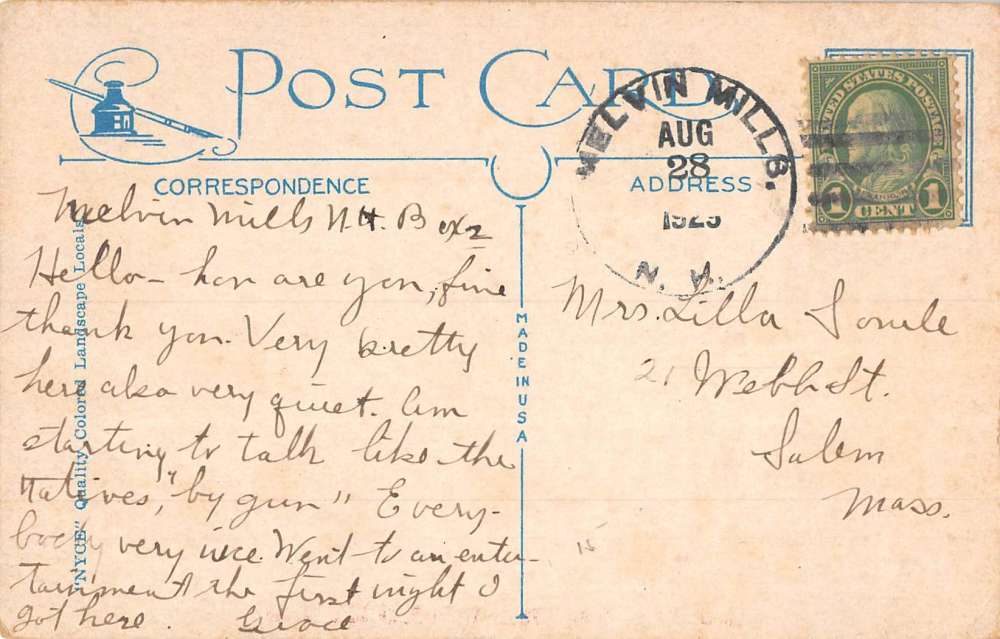 POST CARD
CORRESPONDENCE
ADDRESS
MELVIN MILLS.
AUG
28
1929
N. H.
UNITED STATES POSTAGE
FRANKLIN
1 CENT 1
Melvin Mills N.H. Box 2
Hello - how are you, fine
thank you. Very pretty
here also very quiet. Am
starting to talk like the
natives, "by gum" Every-
body very nice. Went to an enter-
tainment the first night I
got here. Grace
"NYCE" Quality Colored Landscape Locals
MADE IN USA
Mrs. Lilla Soule
21 Webb St.
Salem
Mass.
15